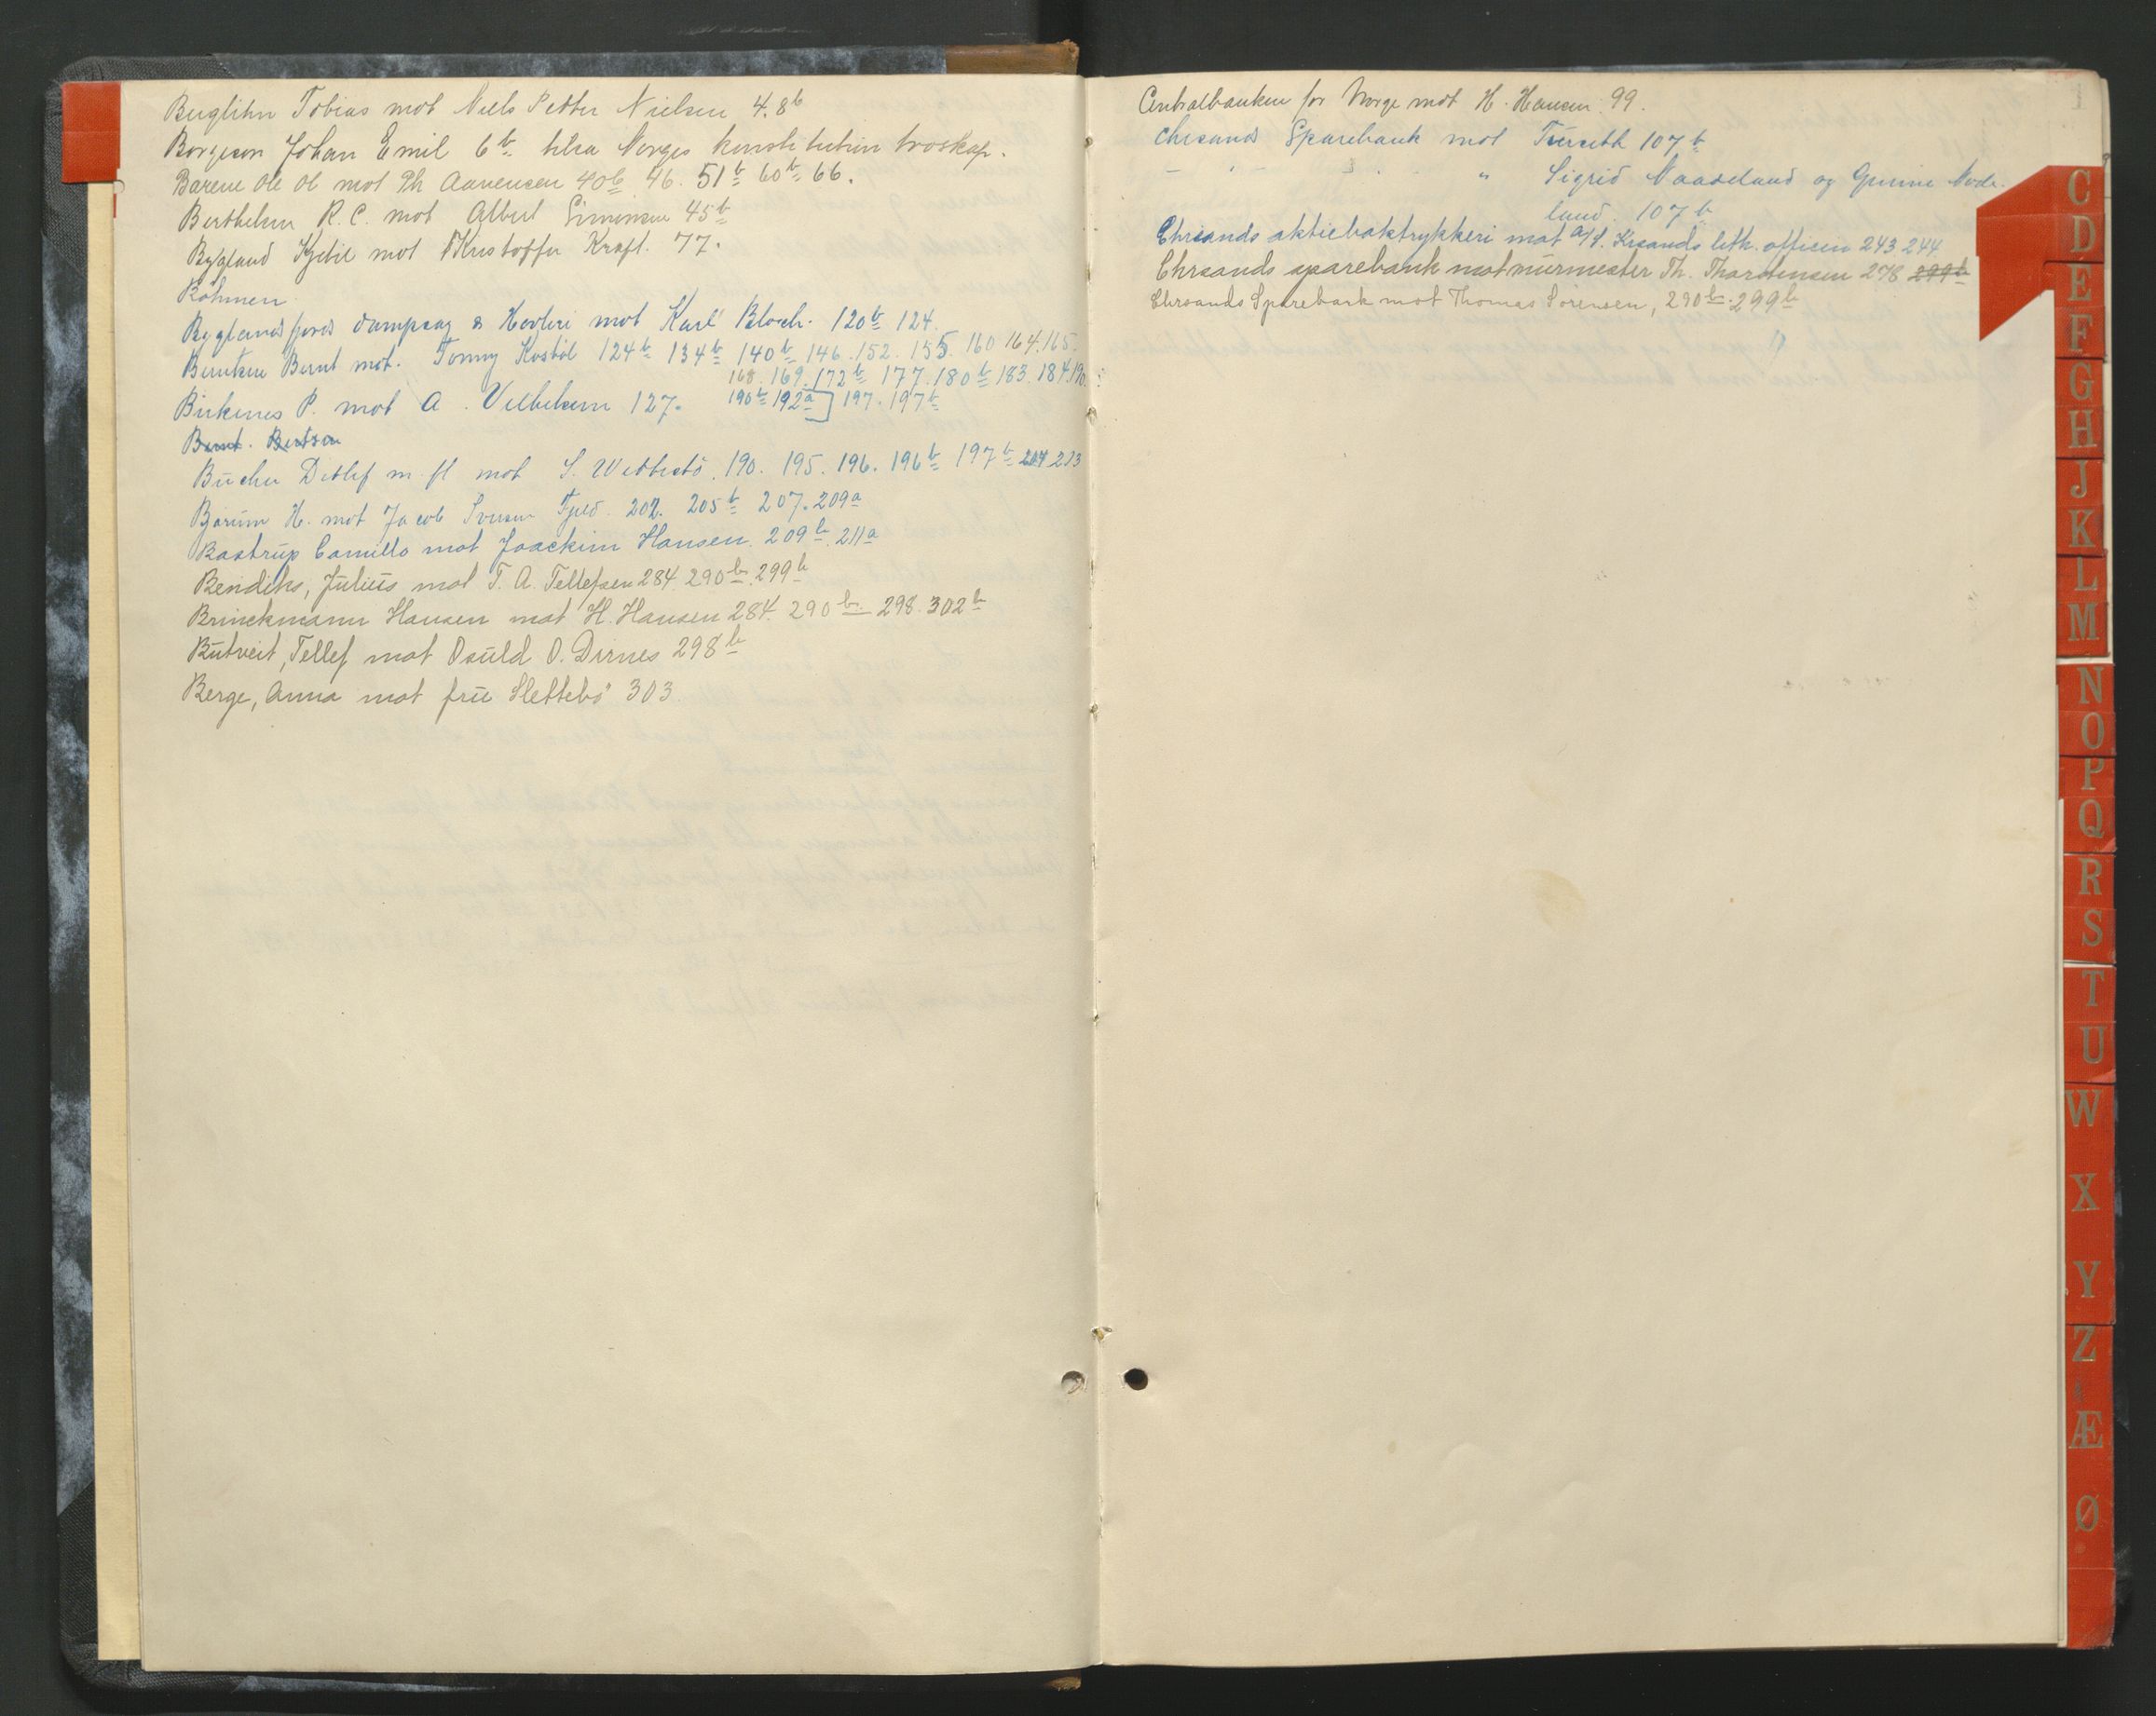 Berglihn Tobias mot Niels Petter Nielsen 4. 8b
Borgeson Johan Emil 6b tilsa Norges konstitution troskap.
Barene Ole Ol mot Ph Aanensen 40b 46. 51b 60b 66.
Berthelsen R. C. mot Albert Simonsen 45b
Bygland Kjetil mot Kristoffer Kraft. 77.
Bohmen
Byglandsfjords dampsag & Hovleri mot Karl Bloch. 120b 124.
Berntsen Bernt mot. Tonny Kostøl 124b 134b 140b 146. 152. 155. 160 164. 165.
168. 169. 172b 177. 180b 183. 184. 190.
190b 192a] 197. 197b
Birkenes P. mot A. Vilhelmsen 127.
Bernt. Bentsen
Bücher Detlef m. fl mot S. Wedtestö. 190. 195. 196. 196b 197b 204 213
Bjorum H. mot Jacob Iversen Fjeld. 202. 205b 207. 209a
Bastrup Camillo mot Joackim Hansen. 209b. 211a
Bendiks, Julius mot T. A. Tellefsen 284. 290b. 299b
Brinckmann Hansen mot H. Hansen 284. 290b. 298. 302b
Butveit, Tellef mot Osuld O. Dirnes 298b
Berge, Anna mot frü Slettebö 303.
Centralbanken for Norge mot H. Hansen. 99.
Chrsands Sparebank mot Tursetth 107b
— " — " Sigrid Naadeland og Gunine Node-
land. 107b
Chrsands aktieboktrykkeri mot A/S. Krsands lith. officin 243 244
Chrsands sparebank mot murmester Th. Thorstensen 278 299b
Chrsands Sparebank mot Thomas Sørensen, 290b. 299b
C
D
E
F
G
H
J
K
L
M
N
O
P
Q
R
S
T
U
W
X
Y
Z
Æ
Ø